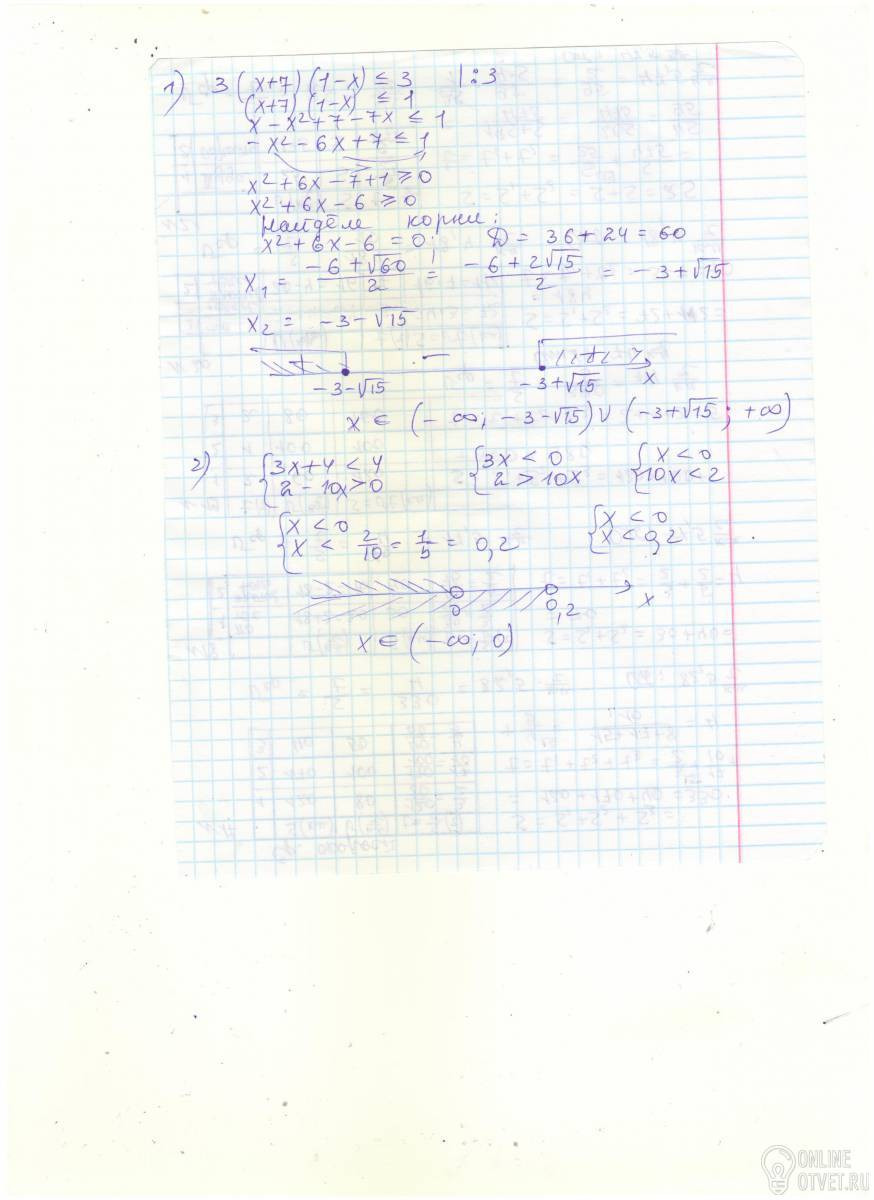 1) 3(x+7)(1-x) ≤ 3 |:3
(x+7)(1-x) ≤ 1
x-x²+7-7x ≤ 1
-x²-6x+7 ≤ 1
x²+6x-7+1 ≥ 0
x²+6x-6 ≥ 0
Найдём корни:
x²+6x-6 = 0; D = 36+24 = 60
x₁ = (-6+√60)/2 = (-6+2√15)/2 = -3+√15
x₂ = -3-√15
+ - + x
-3-√15 -3+√15
x ∈ (-∞; -3-√15) ∪ (-3+√15; +∞)
2) {3x+4 < 4 {3x < 0 {x < 0
{2-10x > 0 {2 > 10x {10x < 2
{x < 0 {x < 0
{x < 2/10 = 1/5 = 0,2 {x < 0,2
0 0,2 x
x ∈ (-∞; 0)
ONLINE
OTVET.RU